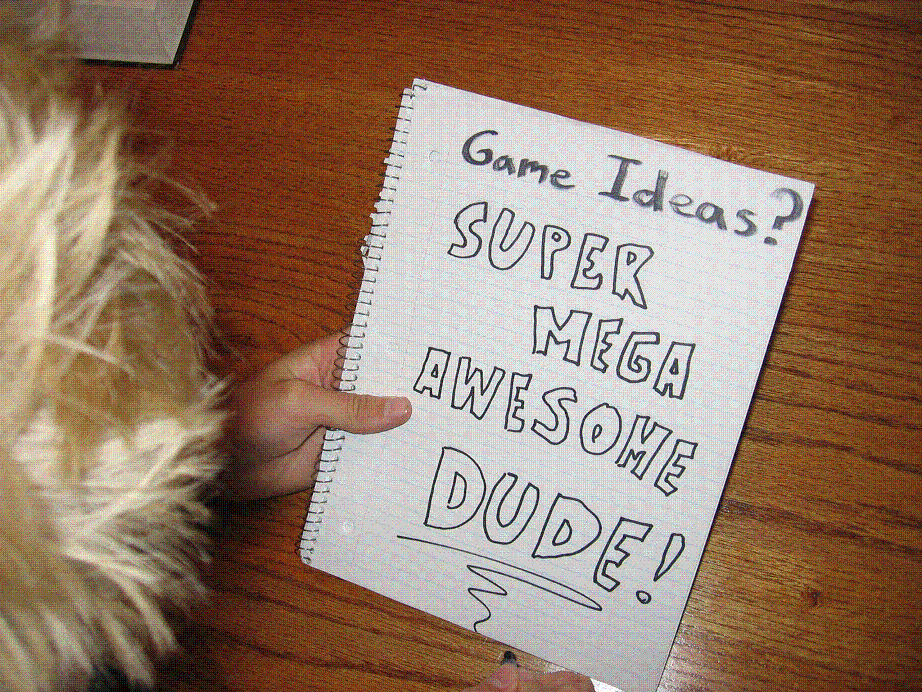 Game Ideas?
SUPER
MEGA
AWESOME
DUDE!